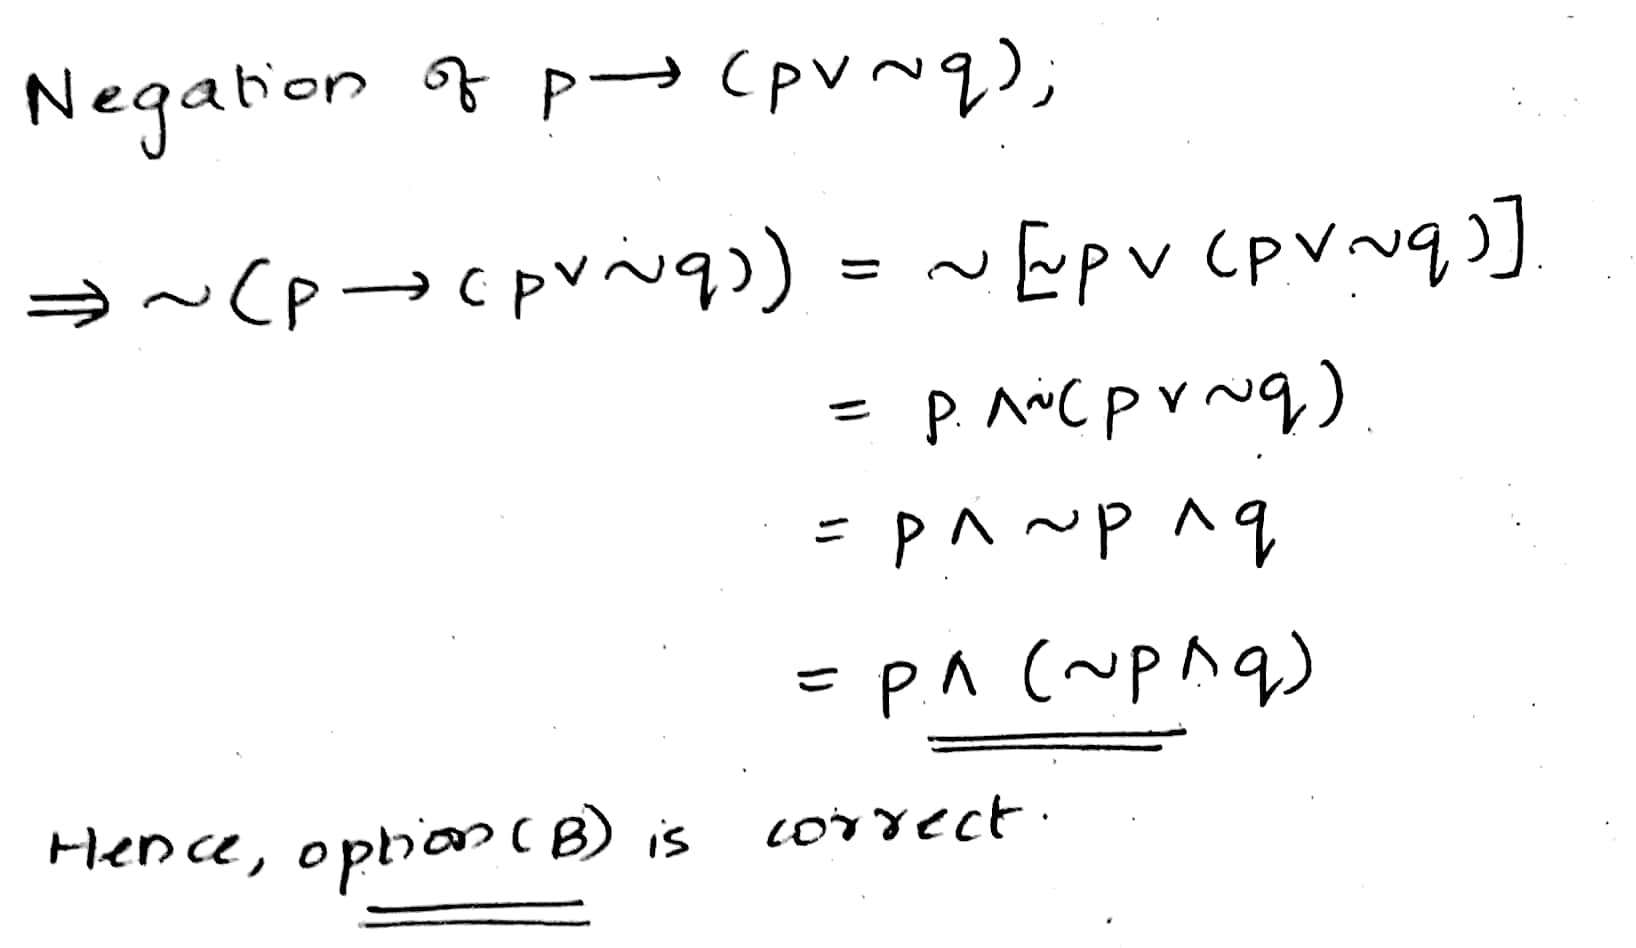 Negation of p → (p ∨ ~q);
⇒ ~(p → (p ∨ ~q)) = ~[~p ∨ (p ∨ ~q)].
= p ∧ ~(p ∨ ~q)
= p ∧ ~p ∧ q
= p ∧ (~p ∧ q)
Hence, option (B) is correct.